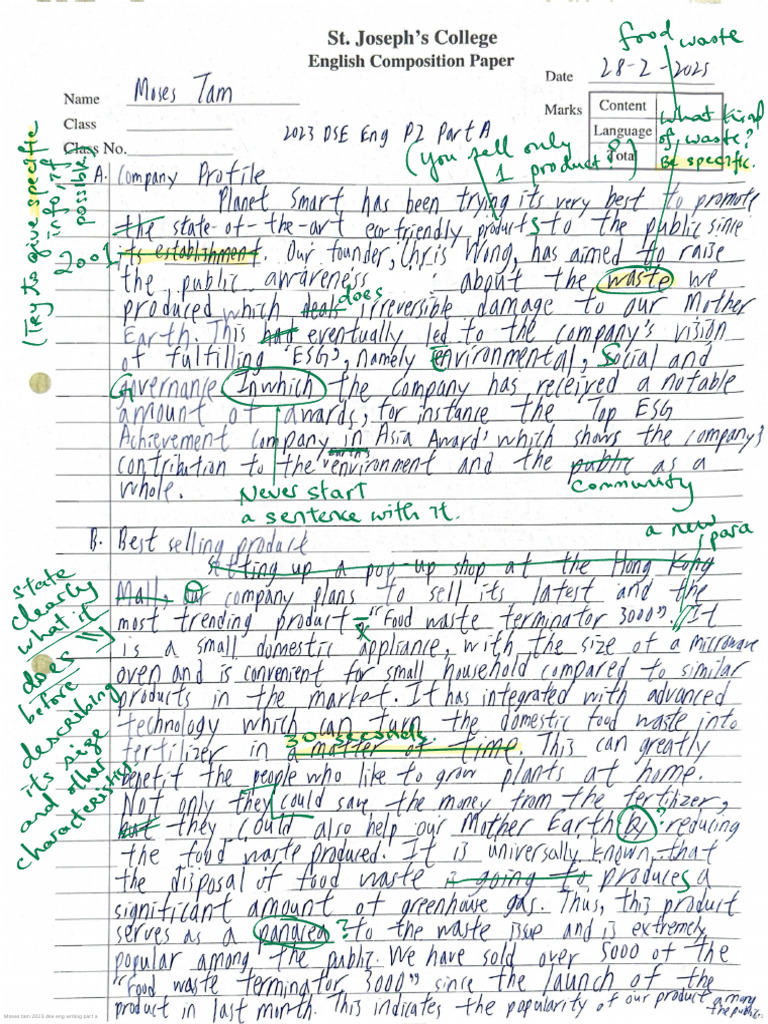 food waste
St. Joseph's College
English Composition Paper
Date 28-2-2025
Name Moses Tam
Marks Content
Class
Language
Class No.
Total
2023 DSE Eng P2 Part A
What kind of waste? Be specific.
(you sell only 1 product?)
(Try to give specific info, if possible)
A. Company Profile
Planet Smart has been trying its very best to promote
the state-of-the-art eco-friendly products to the public since
2001
its establishment. Our founder, Chris Wong, has aimed to raise
the public awareness about the waste we
does
produced which deals irreversible damage to our Mother
Earth. This had eventually led to the company's vision
of fulfilling 'ESG', namely Environmental, Social and
Governance. In which the company has received a notable
amount of awards, for instance the 'Top ESG
Achievement Company in Asia Award' which shows the company's
contribution to the environment and the public as a
community
whole.
Never start
a sentence with it.
a new para
B. Best selling product
Setting up a pop-up shop at the Hong Kong
Mall, our company plans to sell its latest and the
most trending product - "Food waste terminator 3000". // It
is a small domestic appliance, with the size of a microwave
oven and is convenient for small household compared to similar
products in the market. It has integrated with advanced
technology which can turn the domestic food waste into
30 seconds
fertilizer in a matter of time. This can greatly
benefit the people who like to grow plants at home.
Not only they could save the money from the fertilizer,
but they could also help our Mother Earth by reducing
the food waste produced. It is universally known that
the disposal of food waste is going to produces a
significant amount of greenhouse gas. Thus, this product
serves as a panacea ? to the waste issue and is extremely
popular among the public. We have sold over 5000 of the
"Food waste terminator 3000" since the launch of the
product in last month. This indicates the popularity of our product among the public.
state clearly what it does before describing its size and other characteristics
Moses tam 2023 dse eng writing part a